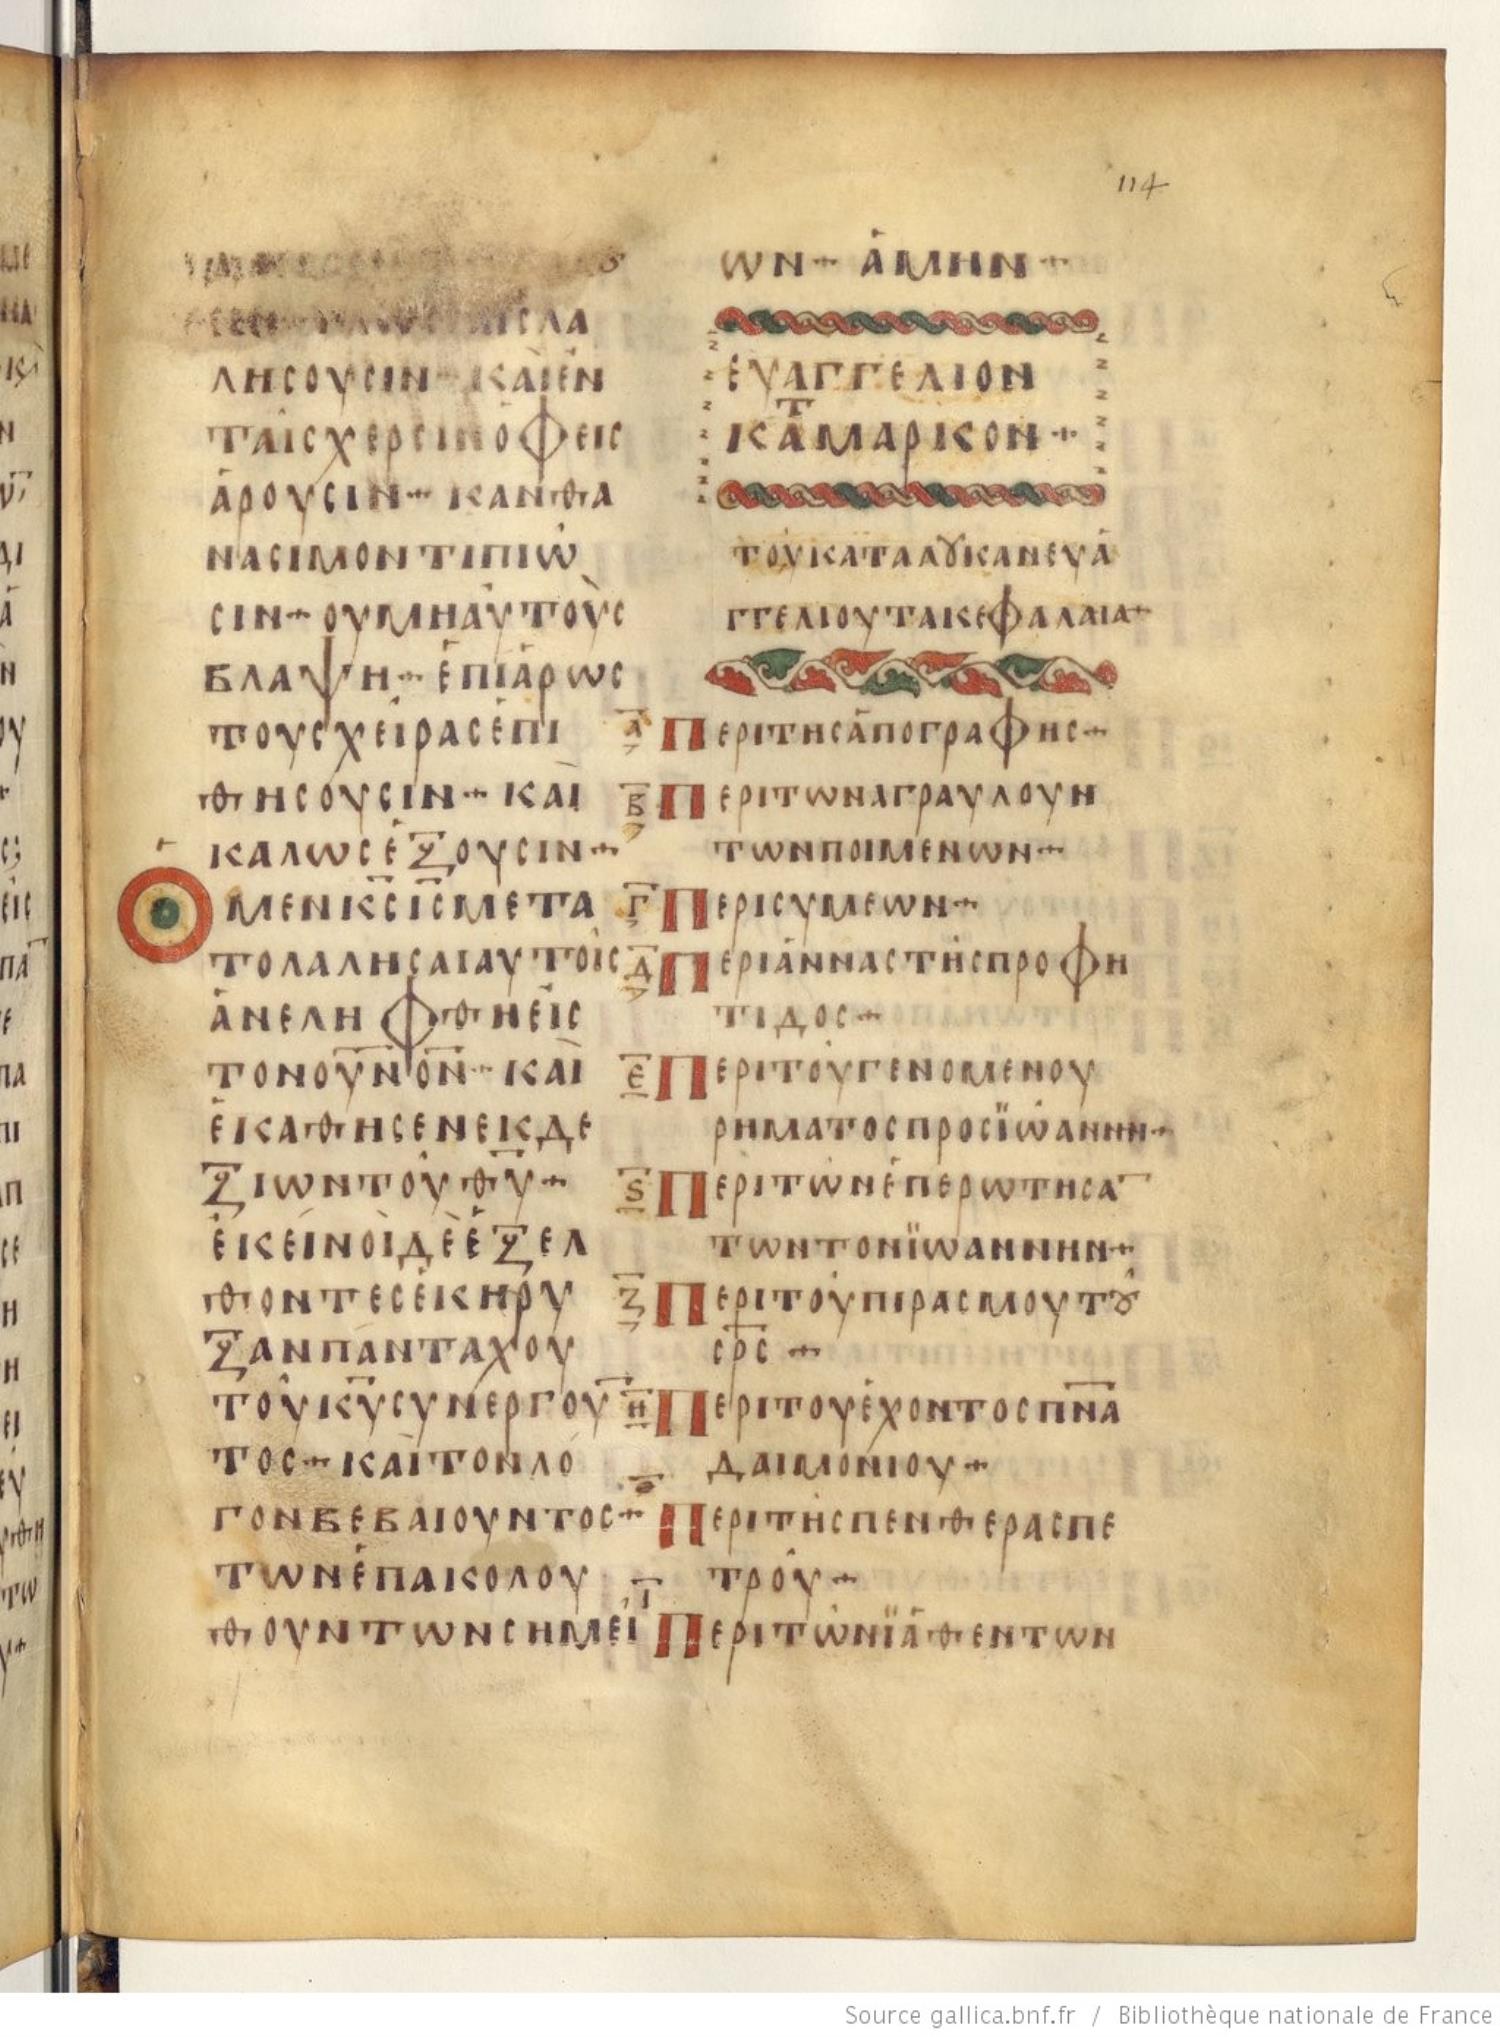 114
ΛΑ
ΛΗСΟΥСΙΝ+ ΚΑῚἘΝ
ΤΑΙСΧΕΡСΙΝὈΦΕΙС
ἈΡΟΥСΙΝ+ ΚΑΝΘΑ
ΝΑСΙΜΟΝΤΙΠΙΩ
СΙΝ+ ΟΥΜΗΑΥΤΟῪС
ΒΛΑΨΗ+ ἘΠΙἈΡΩС
ΤΟΥСΧΕΙΡΑСἘΠΙ
ΘΗСΟΥСΙΝ+ ΚΑῚ
ΚΑΛΩСἙΞΟΥСΙΝ+
ΟΜΕΝΚ̅С̅Ι̅С̅ΜΕΤΑ
ΤΟΛΑΛΗСΑΙΑΥΤΟΙС
ἈΝΕΛΗΦΘΗΕἸС
ΤΟΝΟΥ̅Ν̅Ο̅Ν̅+ ΚΑῚ
ἘΚΑΘΗСΕΝΕΚΔΕ
ΞΙΩΝΤΟΥΘ̅Υ̅+
ἘΚΕΙΝΟῚΔῈἘΞΕΛ
ΘΟΝΤΕСἘΚΗΡΥ
ΞΑΝΠΑΝΤΑΧΟΥ
ΤΟΥΚ̅Υ̅СΥΝΕΡΓΟΥ̅
ΤΟС+ ΚΑῚΤΟΝΛΟ
ΓΟΝΒΕΒΑΙΟΥΝΤΟС+
ΤΩΝἘΠΑΙΚΟΛΟΥ
ΘΟΥΝΤΩΝСΗΜΕΙ
ΩΝ+ ἈΜΗΝ+
ΕΥΑΓΓΕΛΙΟΝ
ΚΑΤΜΑΡΙΚΟΝ+
ΤΟΥΚΑΤΑΛȢΚΑΝΕΥΑ
ΓΓΕΛΙΟΥΤΑΚΕΦΑΛΑΙΑ+
Α̅ ΠΕΡΙΤΗСἈΠΟΓΡΑΦΗС+
Β̅ ΠΕΡΙΤΩΝΑΓΡΑΥΛΟΥΝ
ΤΩΝΠΟΙΜΕΝΩΝ+
Γ̅ ΠΕΡΙСΥΜΕΩΝ+
Δ̅ ΠΕΡΙἌΝΝΑСΤΗСΠΡΟΦΗ
ΤΙΔΟС+
Ε̅ ΠΕΡΙΤΟΥΓΕΝΟΜΕΝΟΥ
ΡΗΜΑΤΟСΠΡΟСΪΩΑΝΝΗΝ+
Ϛ̅ ΠΕΡΙΤΩΝἘΠΕΡΩΤΗСΑ̅
ΤΩΝΤΟΝΪΩΑΝΝΗΝ+
Ζ̅ ΠΕΡΙΤΟΥΠΙΡΑСΜΟΥΤȢ
С̅Ρ̅С̅+
Η̅ ΠΕΡΙΤΟΥἘΧΟΝΤΟСΠ̅Ν̅Α̅
ΔΑΙΜΟΝΙΟΥ+
Θ̅ ΠΕΡΙΤΗСΠΕΝΘΕΡΑСΠΕ
ΤΡΟΥ+
Ι̅ ΠΕΡΙΤΩΝΪΑΘΕΝΤΩΝ
Source gallica.bnf.fr / Bibliothèque nationale de France